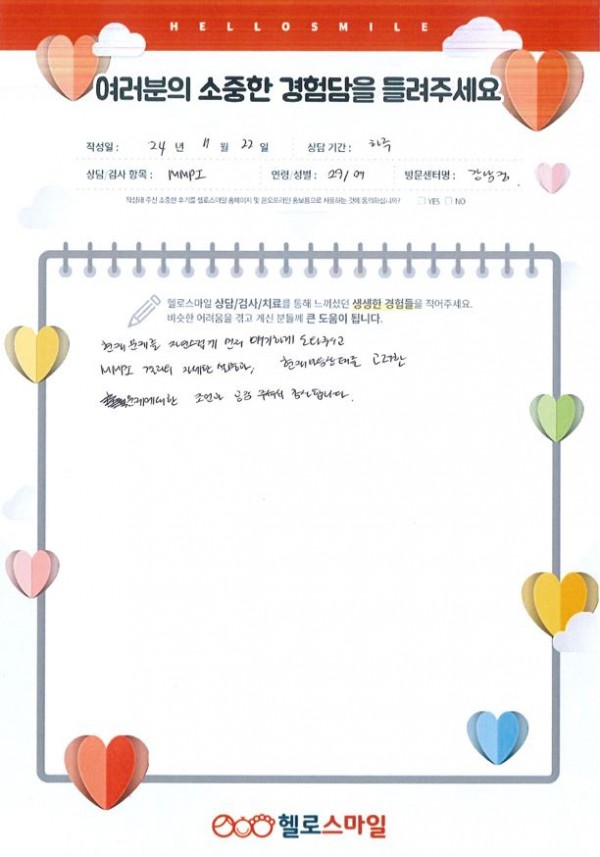 HELLOSMILE
여러분의 소중한 경험담을 들려주세요
작성일 : 24 년 11 월 22 일 상담 기간 : 하루
상담/검사 항목 : MMPI 연령/성별 : 29/ 방문센터명 : 강남점.
작성해 주신 소중한 후기를 헬로스마일 홈페이지 및 온오프라인 홍보용으로 사용하는 것에 동의하십니까? YES NO
헬로스마일 상담/검사/치료를 통해 느끼셨던 생생한 경험들을 적어주세요.
비슷한 어려움을 겪고 계신 분들께 큰 도움이 됩니다.
현재 문제를 자연스럽게 먼저 얘기하게 도와주시고
MMPI 검사의 자세한 설명과, 현재 고려한
문제에대한 조언과 공감 주셔서 감사합니다.
헬로스마일